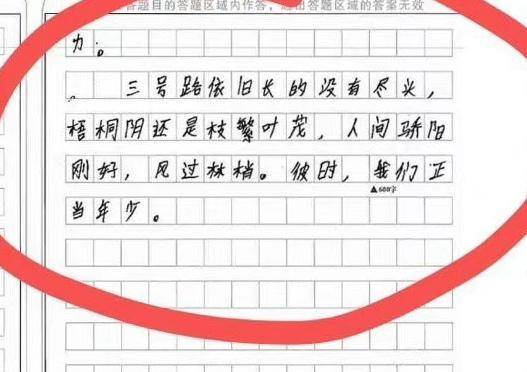 答题目的答题区域内作答，超出答题区域的答案无效
力。
。 三号路依旧长的没有尽头，
梧桐阴还是枝繁叶茂，人间骄阳
刚好，风过林梢。彼时，我们正
▲600字
当年少。